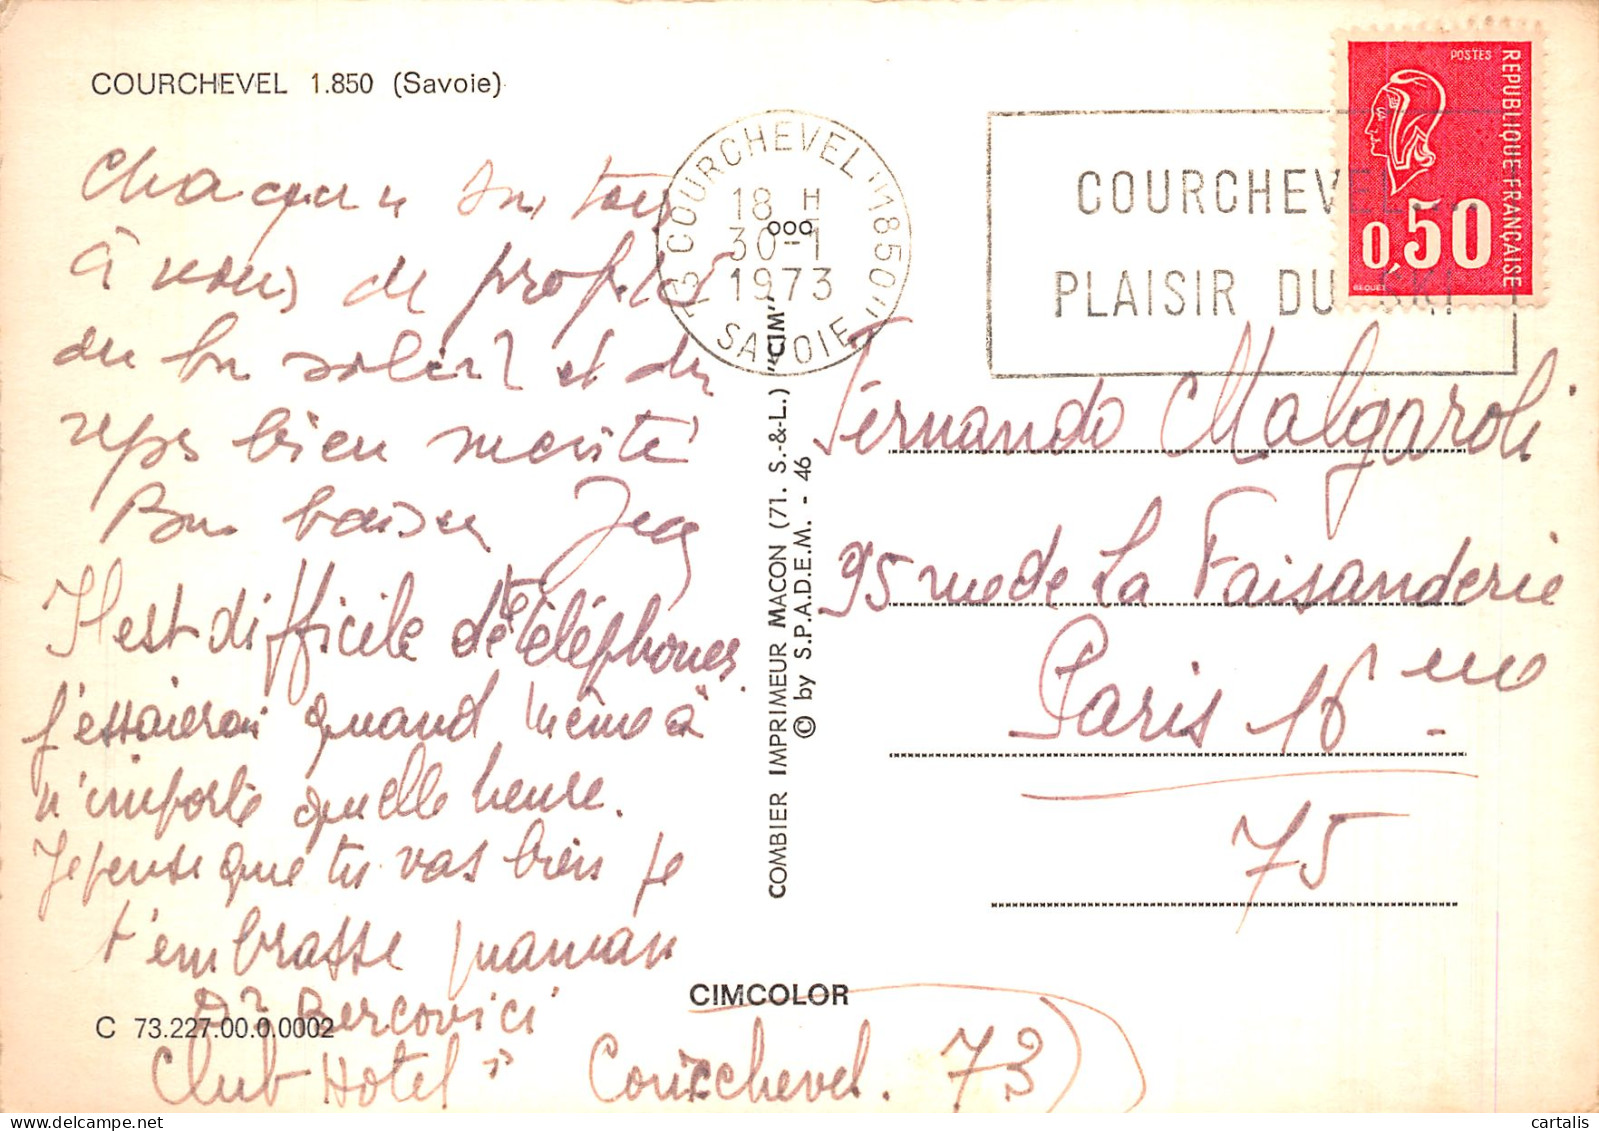 COURCHEVEL 1.850 (Savoie)
Chacun son tour
à nous de profiter
du bon soleil et du
repos bien mérité
Bons baisers
Il est difficile de Téléphoner
j'essaierai quand même à
n'importe quelle heure.
Je pense que tu vas bien je
t'embrasse maman
Bercovici
Club Hotel Courchevel. 73
C 73.227.00.0.0002
CIMCOLOR
COMBIER IMPRIMEUR MACON (71. S.-&-L.) "CIM"
© by S.P.A.D.E.M. - 46
73 COURCHEVEL "1850" SAVOIE
18 H
30-1
1973
COURCHEVEL...
PLAISIR DU SKI
POSTES
REPUBLIQUE FRANÇAISE
0,50
BEQUET
Fernando Malgaroli
95 rue de La Faisanderie
Paris 16 me
75
cartalis